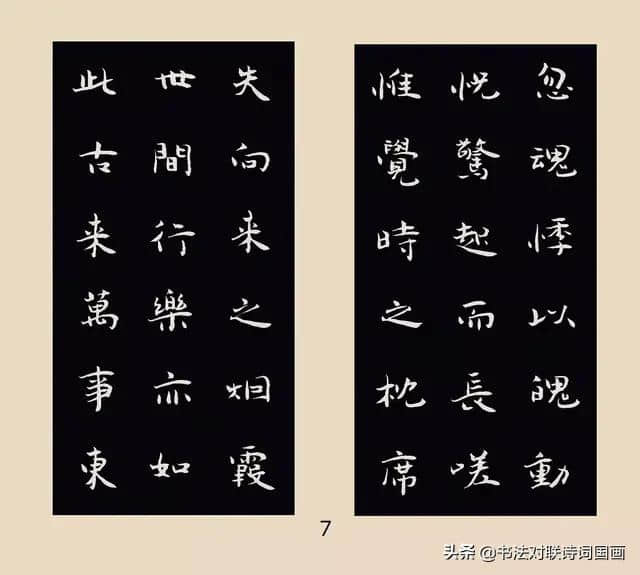 忽魂悸以魄動
怳驚起而長嗟
惟覺時之枕席
失向来之烟霞
世間行樂亦如
此古来萬事東
7
头条 @书法对联诗词国画